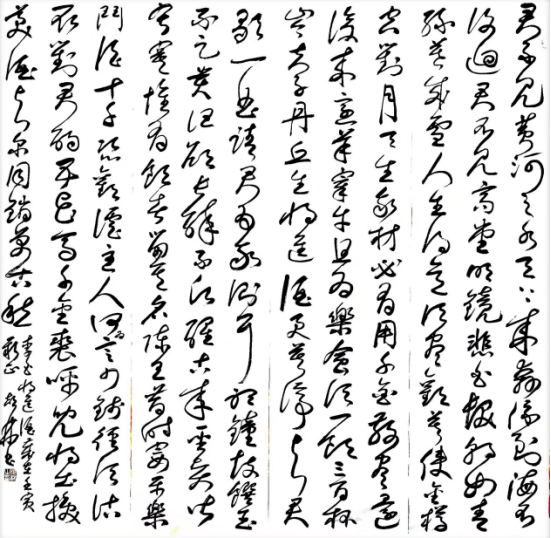 君不見黃河之水天上來奔流到海不
復迴君不見高堂明鏡悲白髮朝如青
絲暮成雪人生得意須盡歡莫使金樽
空對月天生我材必有用千金散盡還
復來烹羊宰牛且為樂會須一飲三百杯
岑夫子丹丘生將進酒君莫停與君
歌一曲請君為我側耳聽鐘鼓饌玉
不足貴但願長醉不願醒古來聖賢皆
寂寞惟有飲者留其名陳王昔時宴平樂
鬥酒十千恣歡謔主人何為言少錢徑須沽
取對君酌五花馬千金裘呼兒將出換
美酒與爾同銷萬古愁
李白將進酒 壬寅